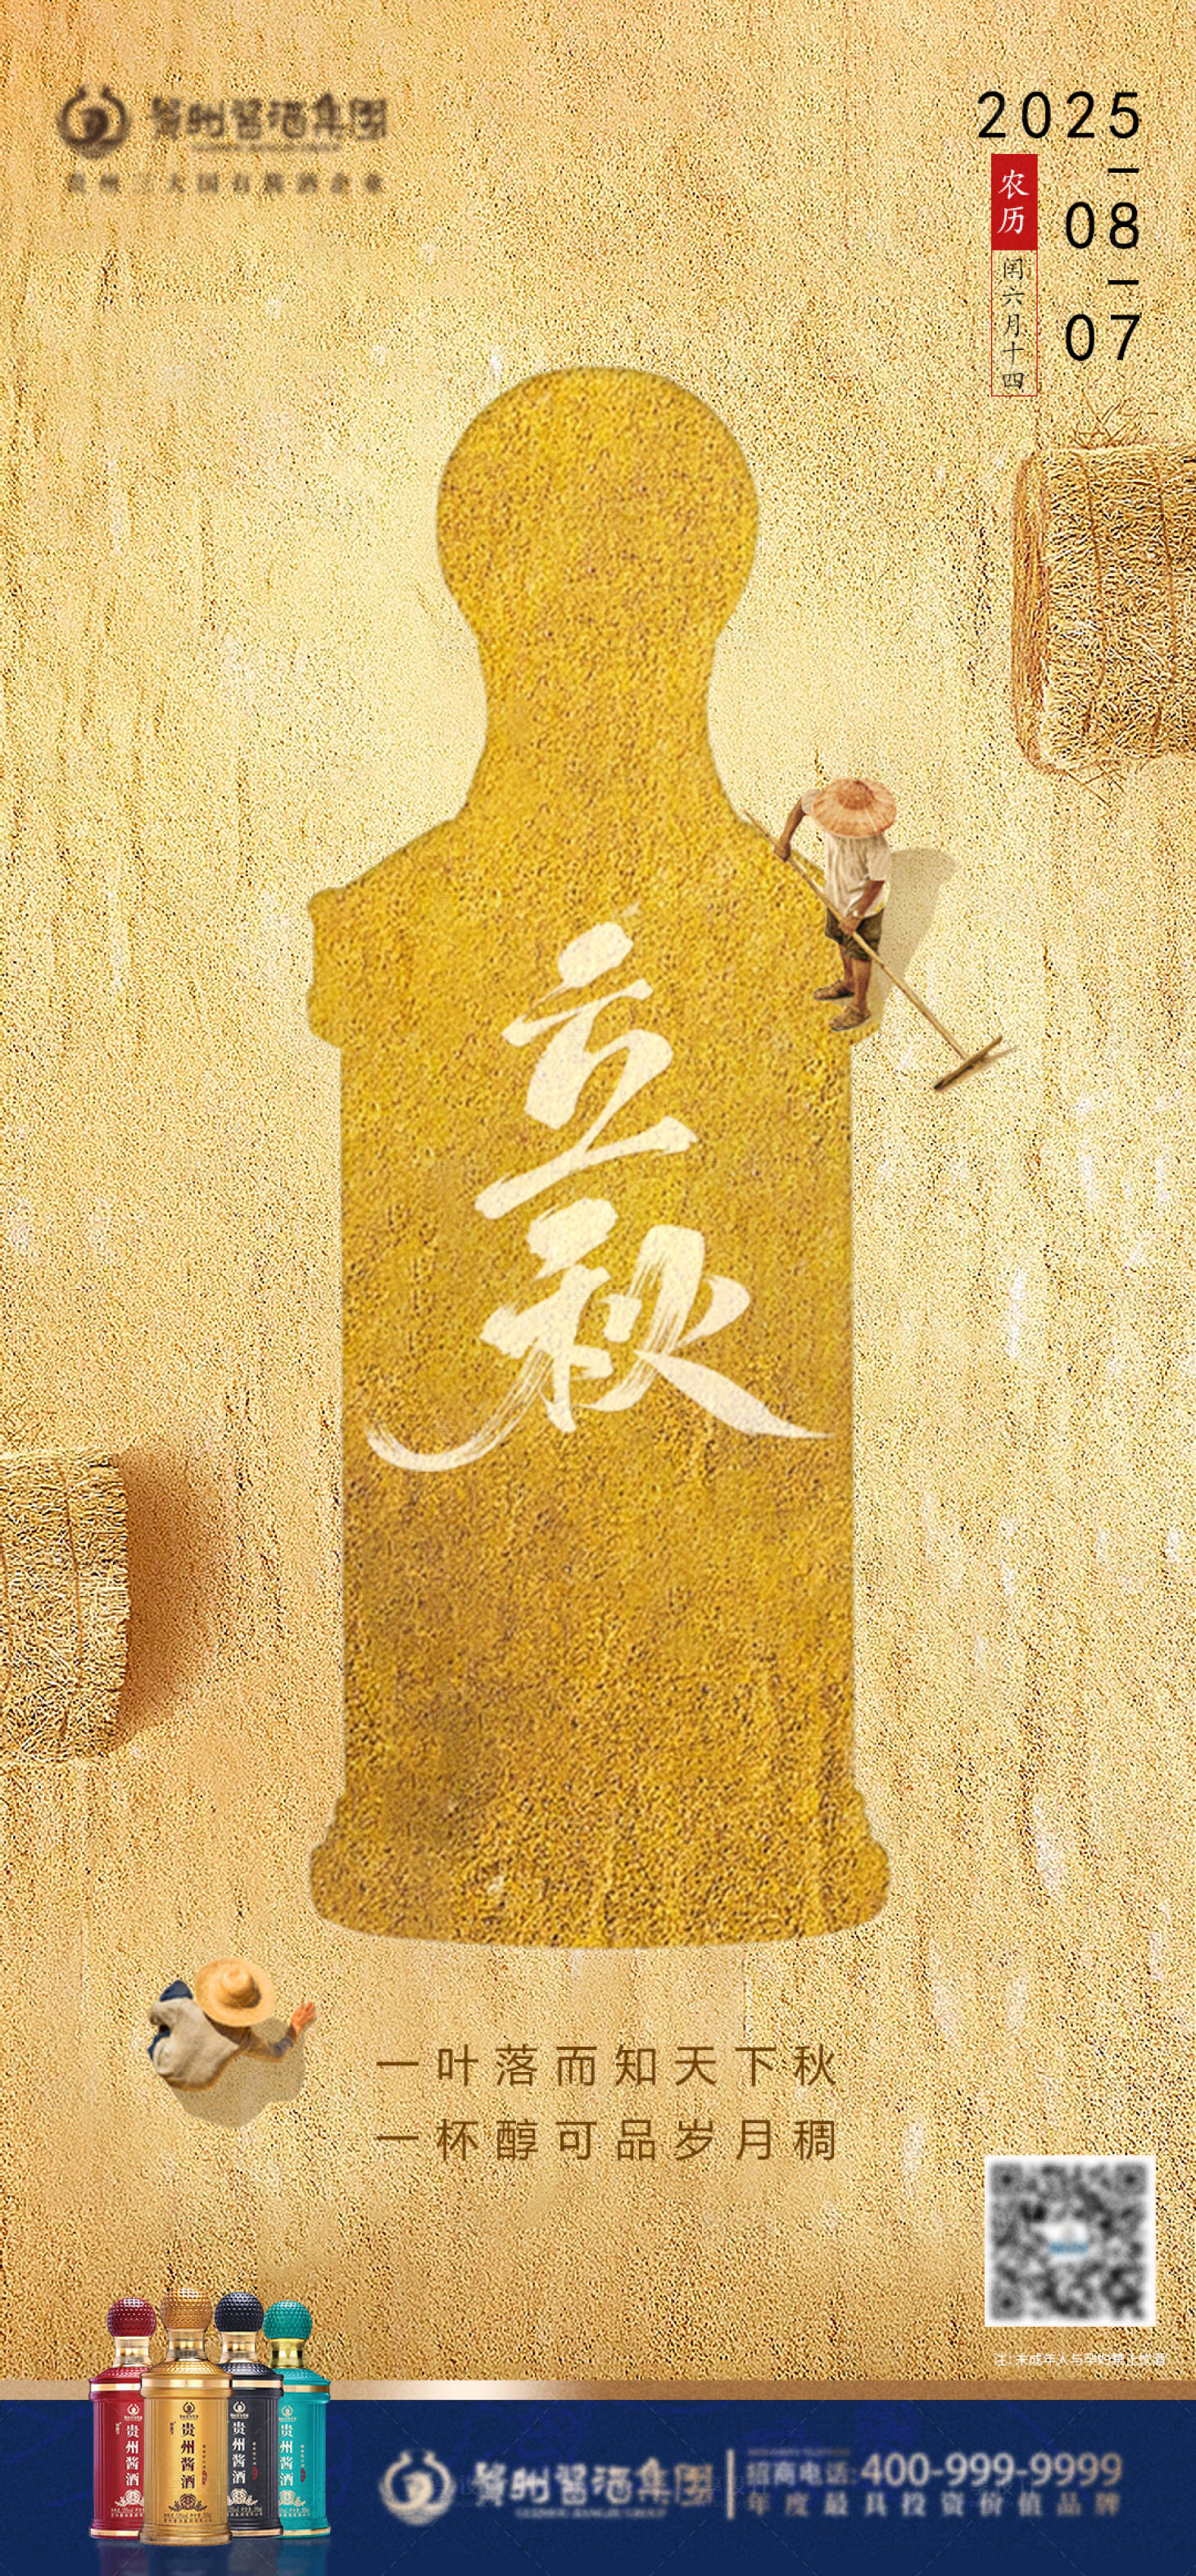 贵州酱酒集团
贵州三大国有酱酒企业
2025
08
07
农历
闰六月十四
立秋
一叶落而知天下秋
一杯醇可品岁月稠
注:未成年人与孕妇禁止饮酒
贵州酱酒
贵州酱酒
贵州酱酒
贵州酱酒
贵州酱酒集团
招商电话:400-999-9999
年度最具投资价值品牌